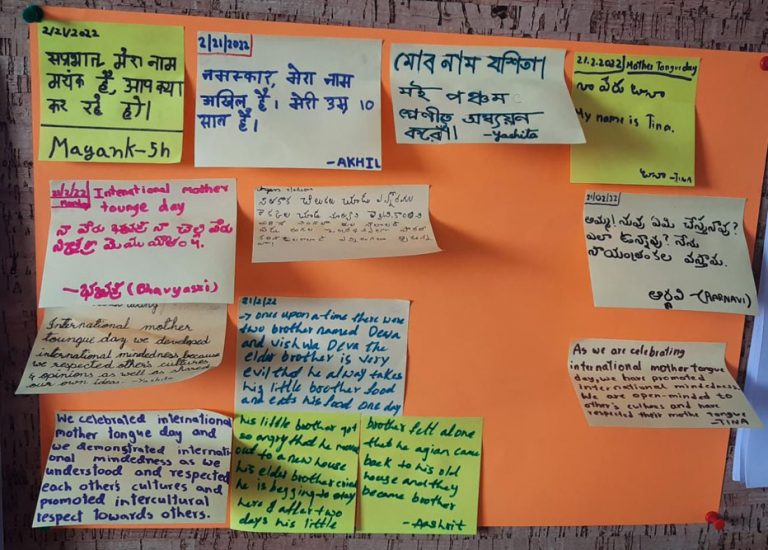 2/21/2022
सप्रभात, मेरा नाम
मयंक है, आप क्या
कर रहे हो।
Mayank-5h
2/21/2022
नमस्कार, मेरा नाम
अखिल है। मेरी उम्र 10
साल है।
-AKHIL
মোৰ নাম যশিতা।
মই পঞ্চম
শ্ৰেণীত অধ্যয়ন
কৰোঁ। -Yashita
21.2.2022 Mother Tongue day
నా పేరు టీనా
My name is Tina.
టీనా -TINA
21/2/22 International mother
Monday tounge day
నా పేరు భవ్యశ్రీ నా చెల్లి పేరు
-భవ్యశ్రీ (Bhavyasri)
21/02/22
అమ్మ! నువ్వు ఏమి చేస్తున్నావు?
ఎలా ఉన్నావు? నేను
సాయంత్రంకల వస్తాను.
ఆర్ణవి -(AARNAVI)
International mother
toungue day we developed
international mindedness because
we respected other's cultures
& opinions as well as shared
our own ideas. -Yashita
21/2/22
→ once upon a time there were
two brother named Deva
and vishwa Deva the
elder brother is very
evil that he always takes
his little brother food
and eats his food one day
his little brother got
so angry that he moved
out to a new house
his elder brother cried
he is begging to stay
here & after two
days his little
brother felt alone
that he agian came
back to his old
house and they
became brother
-Aashrit
As we are celebrating
international mother tongue
day, we have promoted
international mindedness.
We are open-minded to
other's cultures and have
respected their mothe tongue
-TINA
We celebrated international
mother tongue day and
we demonstrated internati
onal mindedness as we
understood and respected
each other's cultures and
promoted intercultural
respect towards others.